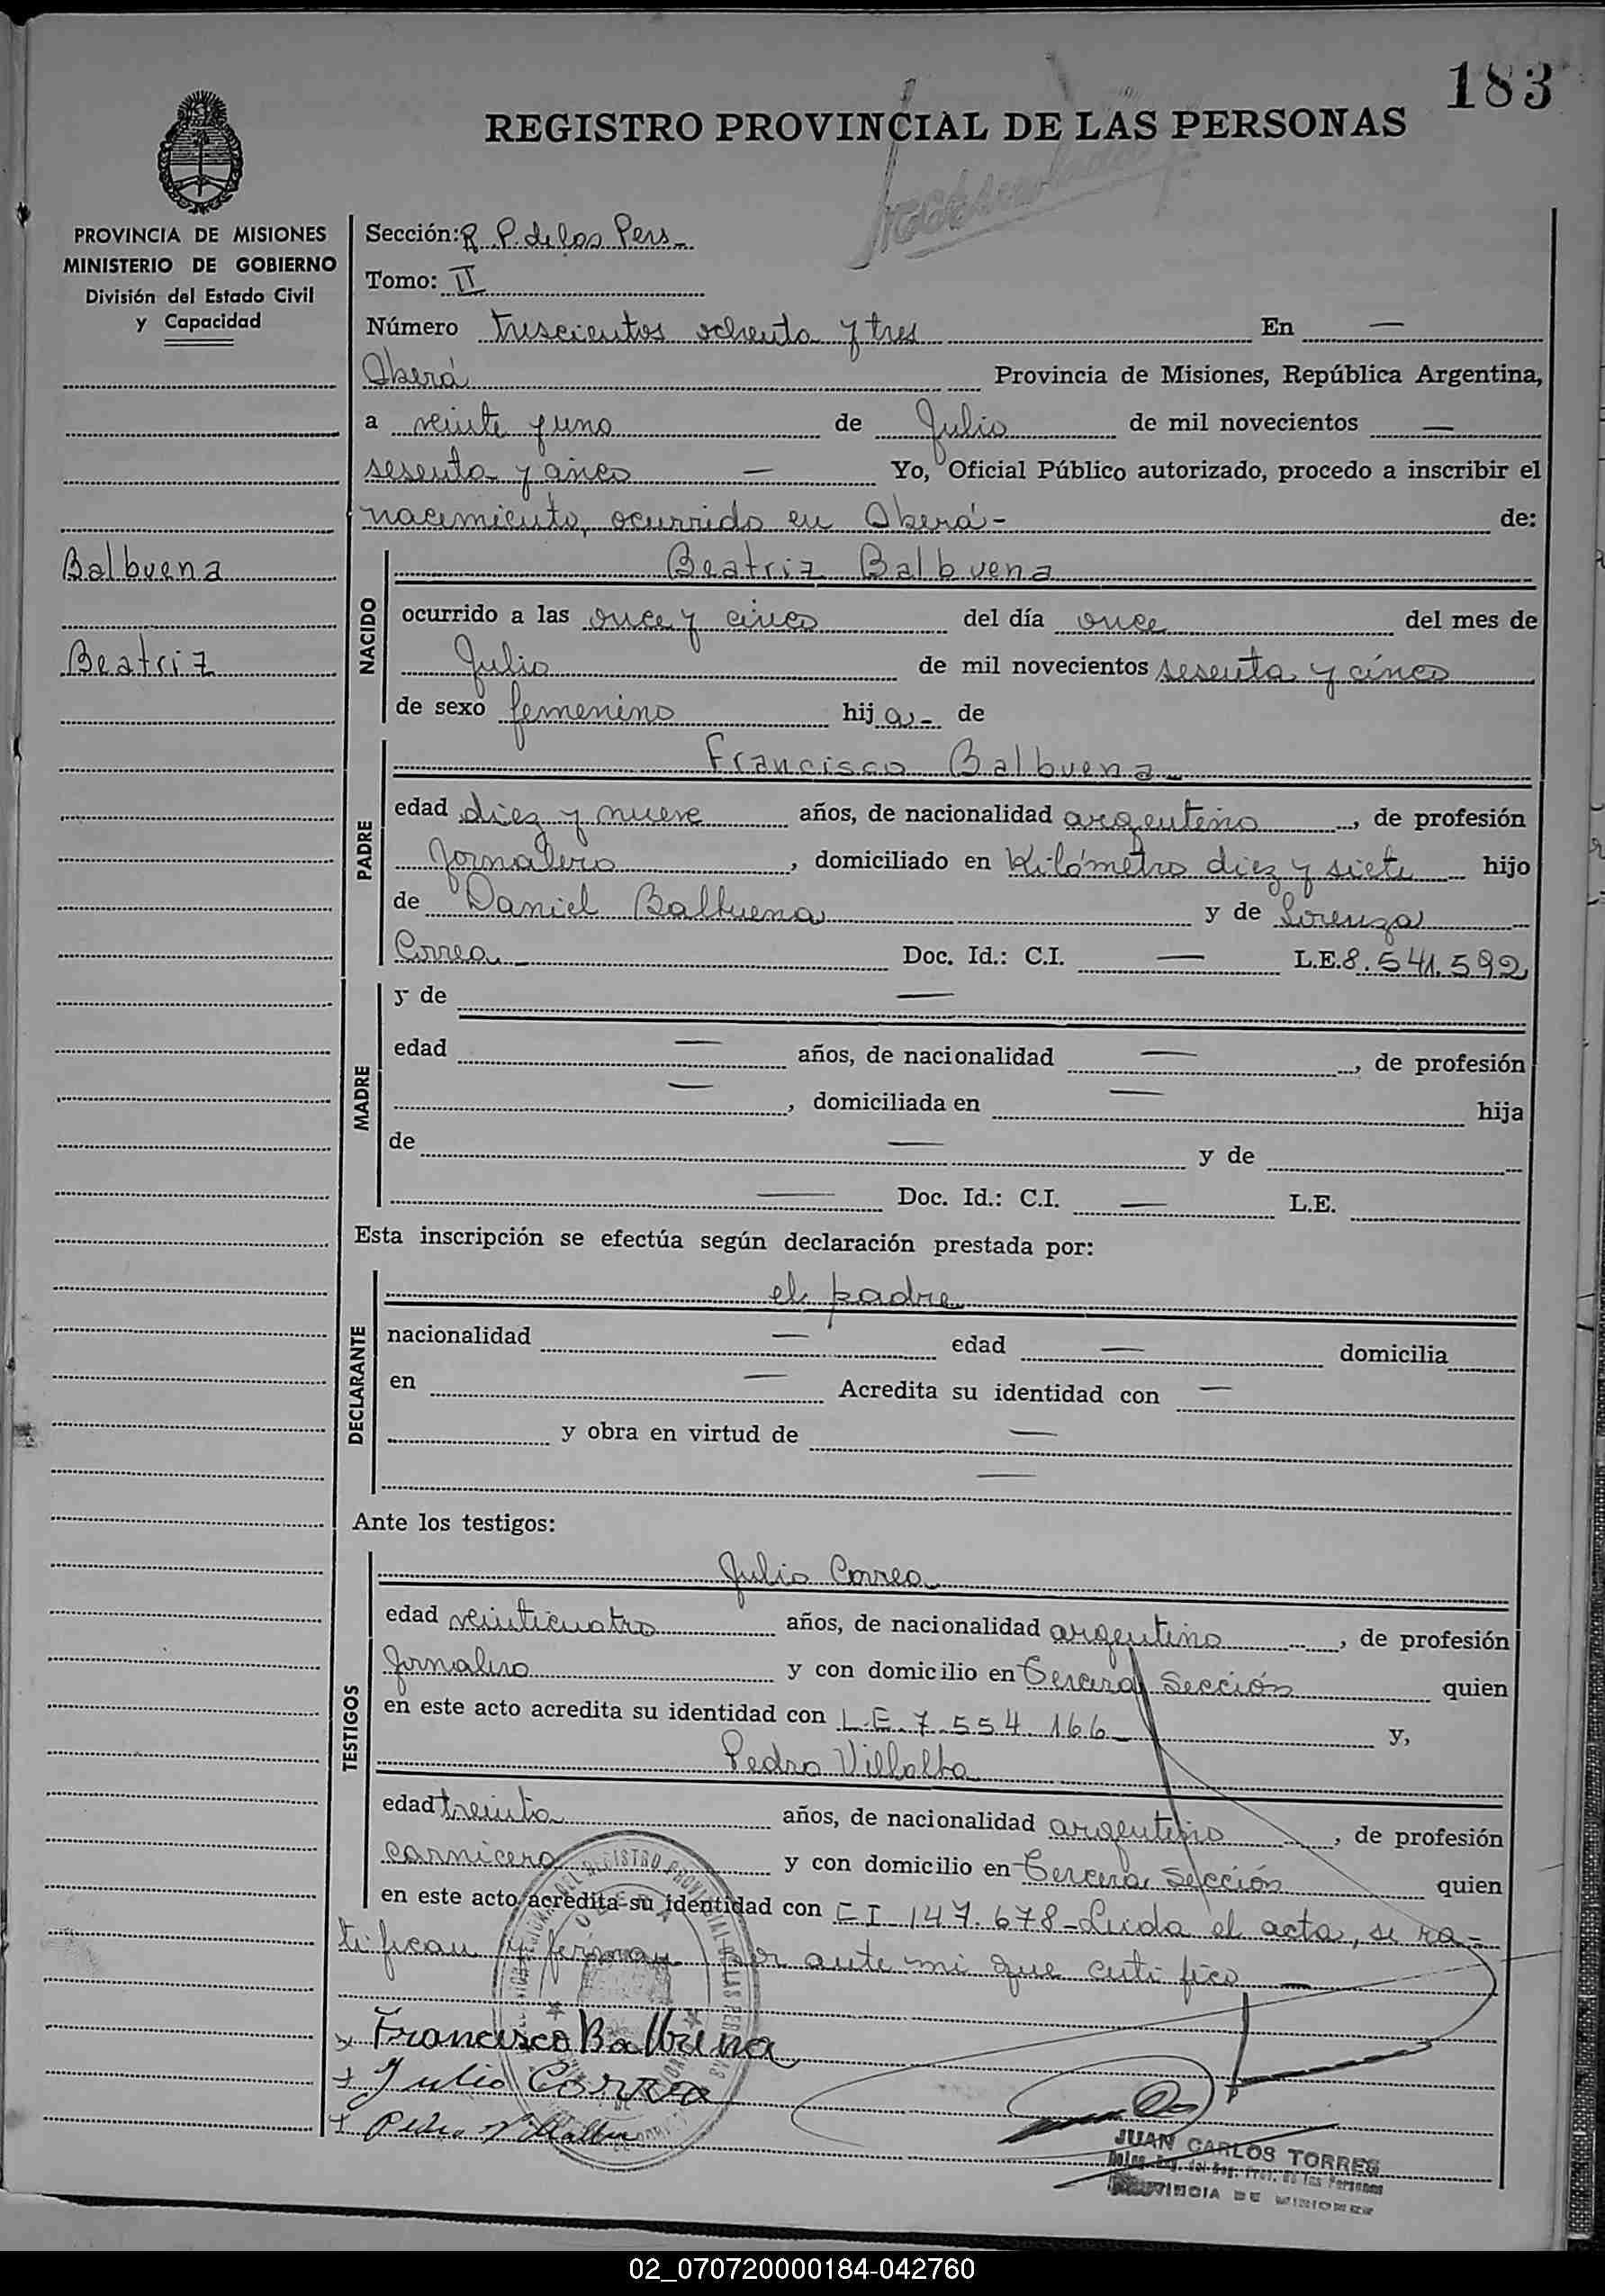 183
REGISTRO PROVINCIAL DE LAS PERSONAS
PROVINCIA DE MISIONES
MINISTERIO DE GOBIERNO
División del Estado Civil
y Capacidad
Balbuena
Beatriz
Sección: R. P. de las Pers.
Tomo: II
Número trescientos ochenta y tres En —
Oberá Provincia de Misiones, República Argentina,
a veinte y uno de Julio de mil novecientos —
sesenta y cinco — Yo, Oficial Público autorizado, procedo a inscribir el
nacimiento, ocurrido en Oberá- de:
NACIDO
Beatriz Balbuena
ocurrido a las once y cinco del día once del mes de
Julio de mil novecientos sesenta y cinco
de sexo femenino hija- de
PADRE
Francisco Balbuena
edad diez y nueve años, de nacionalidad argentino, de profesión
Jornalero, domiciliado en Kilómetro diez y siete hijo
de Daniel Balbuena y de Lorenza
Correa - Doc. Id.: C.I. — L.E. 8.541.592
MADRE
y de —
edad — años, de nacionalidad —, de profesión
—, domiciliada en — hija
de — y de
— Doc. Id.: C.I. — L.E.
Esta inscripción se efectúa según declaración prestada por:
DECLARANTE
el padre
nacionalidad — edad — domicilia
en — Acredita su identidad con —
y obra en virtud de —
—
Ante los testigos:
TESTIGOS
Julio Correa
edad veinticuatro años, de nacionalidad argentino, de profesión
Jornalero y con domicilio en Tercera Sección quien
en este acto acredita su identidad con L.E. 7.554.166 - y,
Pedro Villalba
edad treinta años, de nacionalidad argentino, de profesión
carnicero y con domicilio en Tercera Sección quien
en este acto acredita su identidad con CI 147.678 - Leida el acta, se ra-
tifican y firman por ante mi que certifico —
x Francisco Balbuena
x Julio Correa
x Pedro Villalba
JUAN CARLOS TORRES
Reg. del Reg. Prov. de las Personas
PROVINCIA DE MISIONES
02_070720000184-042760